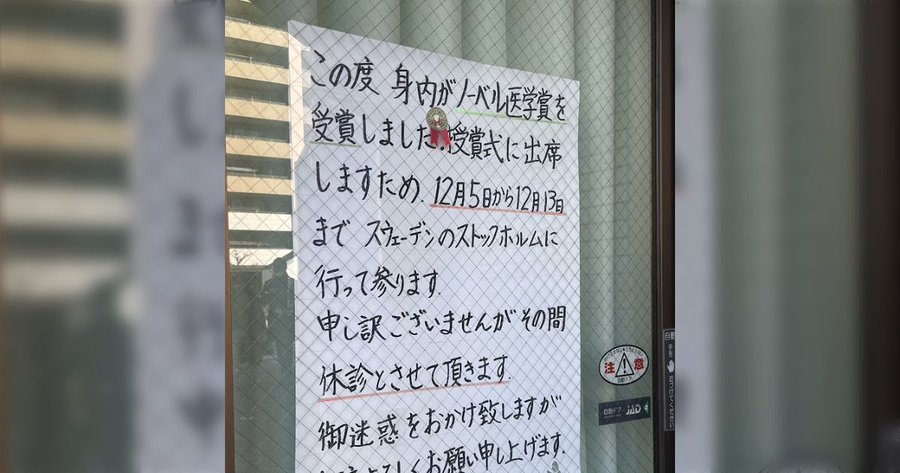 この度 身内がノーベル医学賞を
受賞しました.授賞式に出席
しますため、12月5日から12月13日
まで スウェーデンのストックホルムに
行って参ります.
申し訳ございませんがその間
休診とさせて頂きます.
御迷惑をおかけ致しますが
よろしくお願い申し上げます.
注意
自動ドア JAD